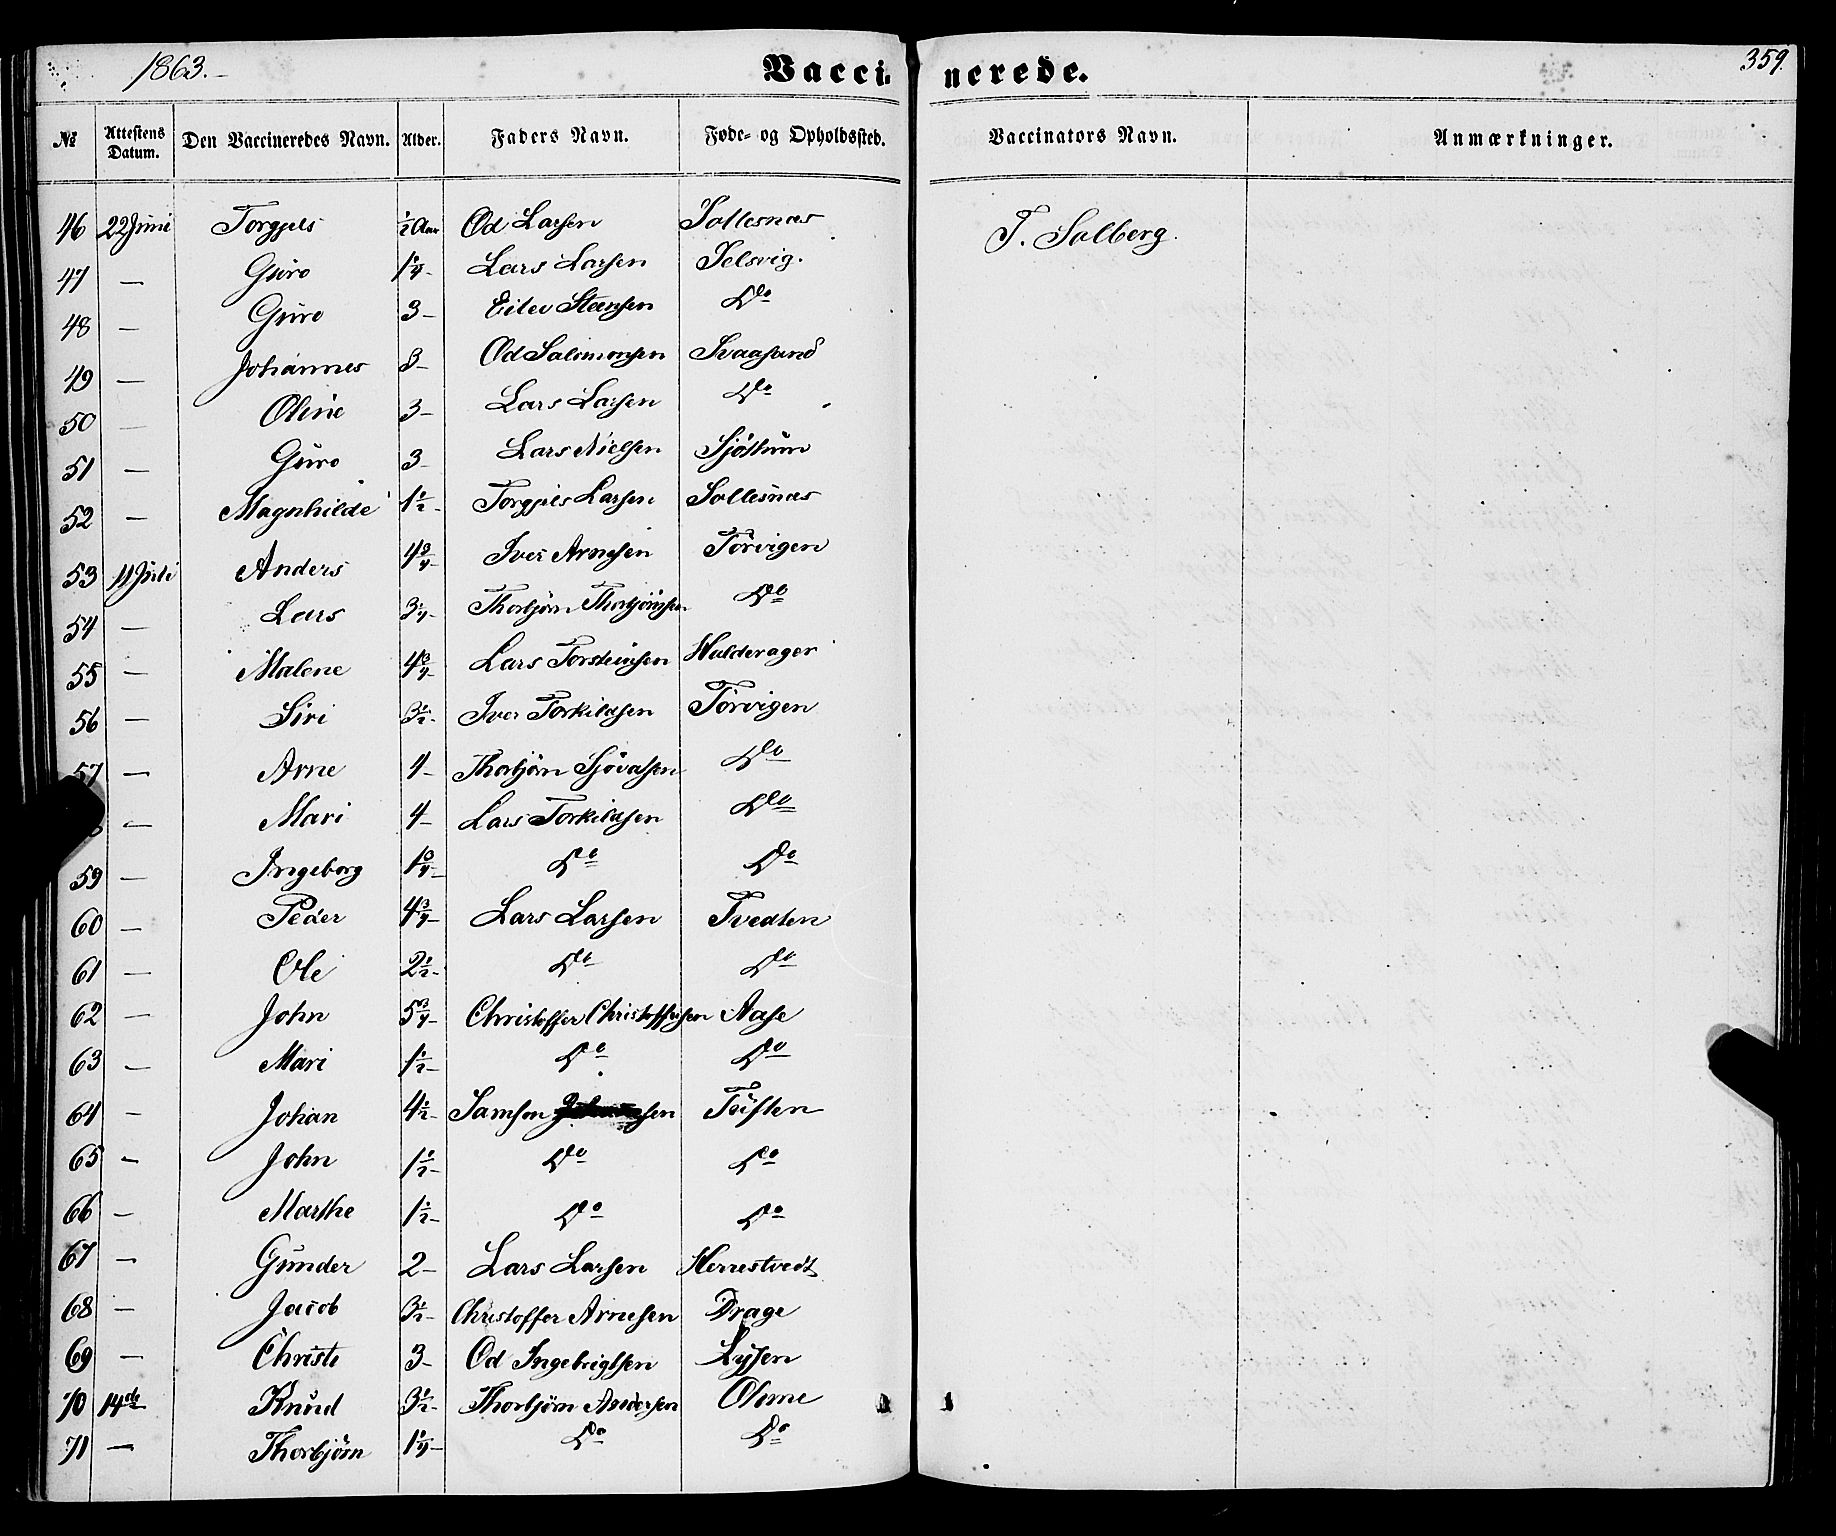 1863. Vaccinerede. 359.
№ Attestens Datum. Den Vaccineredes Navn. Alder. Faders Navn. Føde- og Opholdssted. Vaccinators Navn. Anmærkninger.
46 22 Juni Torgjils ½ Aar Od Larsen Sallesnæs T. Solberg.
47 — Guro 1¼ Lars Larsen Selsvig.
48 — Guro 3 Eilev Steensen Do
49 — Johannes 3 Od Salimonsen Svaasand
50 — Oline 3 Lars Larsen Do
51 — Guro 3 Lars Nielsen
52 — Magnhilde 1½ Torgjils Larsen Sallesnæs
53 11 Juli Anders 4¾ Iver Arnesen Törvigen
54 — Lars 3¼ Thorbjörn Thorbjörnsen Do
55 — Malene 4¾ Lars Torsteinsen Halderager
56 — Siri 3½ Iver Torkildsen Törvigen
57 — Arne 4 Thorbjörn Sjövatsen Do
— Mari 4 Lars Torkildsen Do
59 — Ingeborg Do Do
60 — Peder 4¾ Lars Larsen Tvedten
61 — Ole 2½ Do Do
62 — John 5¾ Christoffer Christoffersen Aase
63 — Mari 1½ Do Do
64 — Johan 4½ Samson Teisten
65 — John 1½ Do Do
66 — Marthe 1½ Do Do
67 — Gunder 2 Lars Larsen Herrestvedt
68 — Jacob 3½ Christoffer Arnesen Drage
69 — Christi 3 Od Ingebrigtsen Lysen
70 14de Knud 3½ Thorbjörn Andersen Ohme
71 — Thorbjörn 1¼ Do Do